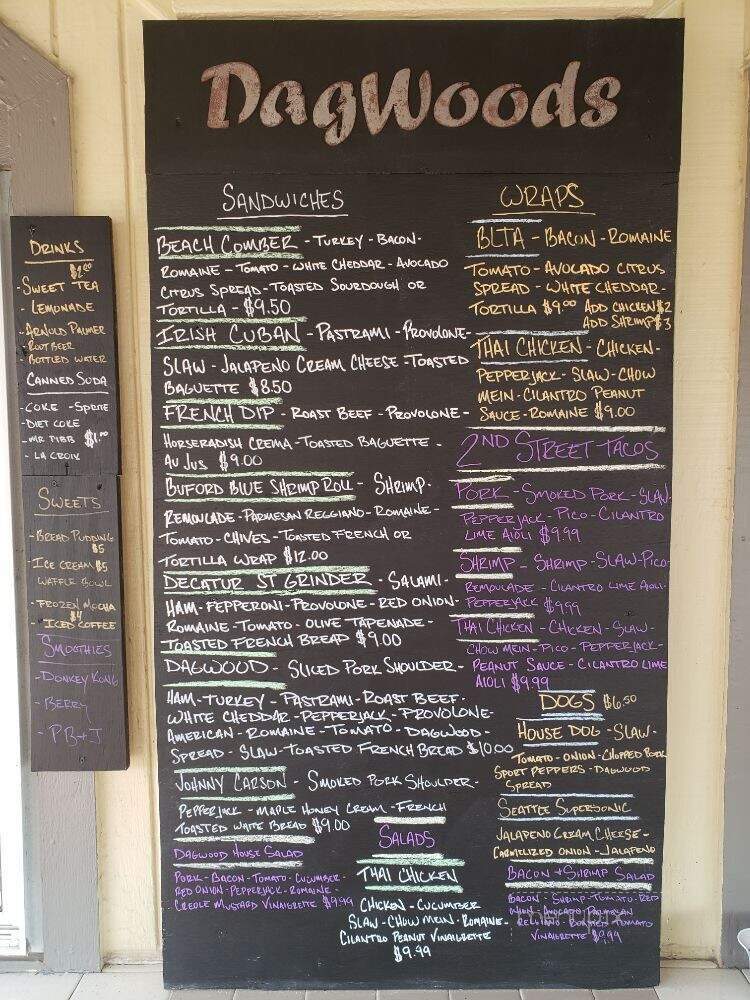 DagWoods
DRINKS
$2.00
- SWEET TEA
- LEMONADE
- ARNOLD PALMER
- ROOT BEER
- BOTTLED WATER
CANNED SODA
- COKE - SPRITE
- DIET COKE
- MR PIBB $1.00
- LA CROIX
SWEETS
- BREAD PUDDING
$5
- ICE CREAM $5
WAFFLE BOWL
- FROZEN MOCHA
$4
ICED COFFEE
SMOOTHIES
- DONKEY KONG
- BERRY
- PB+J
SANDWICHES
BEACH COMBER - TURKEY - BACON -
ROMAINE - TOMATO - WHITE CHEDDAR - AVOCADO
CITRUS SPREAD - TOASTED SOURDOUGH OR
TORTILLA - $9.50
IRISH CUBAN - PASTRAMI - PROVOLONE -
SLAW - JALAPENO CREAM CHEESE - TOASTED
BAGUETTE $8.50
FRENCH DIP - ROAST BEEF - PROVOLONE -
HORSERADISH CREMA - TOASTED BAGUETTE -
AU JUS $9.00
BUFORD BLUE SHRIMP ROLL - SHRIMP -
REMOULADE - PARMESAN REGGIANO - ROMAINE -
TOMATO - CHIVES - TOASTED FRENCH OR
TORTILLA WRAP $12.00
DECATUR ST GRINDER - SALAMI -
HAM - PEPPERONI - PROVOLONE - RED ONION -
ROMAINE - TOMATO - OLIVE TAPENADE -
TOASTED FRENCH BREAD $9.00
DAGWOOD - SLICED PORK SHOULDER -
HAM - TURKEY - PASTRAMI - ROAST BEEF -
WHITE CHEDDAR - PEPPERJACK - PROVOLONE -
AMERICAN - ROMAINE - TOMATO - DAGWOOD -
SPREAD - SLAW - TOASTED FRENCH BREAD $10.00
JOHNNY CARSON - SMOKED PORK SHOULDER -
PEPPERJACK - MAPLE HONEY CREAM - FRENCH
TOASTED WHITE BREAD $9.00
WRAPS
BLTA - BACON - ROMAINE
TOMATO - AVOCADO CITRUS
SPREAD - WHITE CHEDDAR -
TORTILLA $9.00 ADD CHICKEN $2
ADD SHRIMP $3
THAI CHICKEN - CHICKEN -
PEPPERJACK - SLAW - CHOW
MEIN - CILANTRO PEANUT
SAUCE - ROMAINE $9.00
2ND STREET TACOS
PORK - SMOKED PORK - SLAW -
PEPPERJACK - PICO - CILANTRO
LIME AIOLI $9.99
SHRIMP - SHRIMP - SLAW - PICO -
REMOULADE - CILANTRO LIME AIOLI -
PEPPERJACK $9.99
THAI CHICKEN - CHICKEN - SLAW -
CHOW MEIN - PICO - PEPPERJACK -
PEANUT SAUCE - CILANTRO LIME
AIOLI $9.99
DOGS $6.50
HOUSE DOG - SLAW -
TOMATO - ONION - CHOPPED PORK
SPORT PEPPERS - DAGWOOD
SPREAD
SEATTLE SUPERSONIC
JALAPENO CREAM CHEESE -
CARMELIZED ONION - JALAPENO
SALADS
DAGWOOD HOUSE SALAD
PORK - BACON - TOMATO - CUCUMBER -
RED ONION - PEPPERJACK - ROMAINE -
CREOLE MUSTARD VINAIGRETTE $9.99
THAI CHICKEN
CHICKEN - CUCUMBER
SLAW - CHOW MEIN - ROMAINE -
CILANTRO PEANUT VINAIGRETTE
$9.99
BACON + SHRIMP SALAD
BACON - SHRIMP - TOMATO - RED
ONION - AVOCADO - PARMESAN
REGGIANO - TOMATO
VINAIGRETTE $9.99